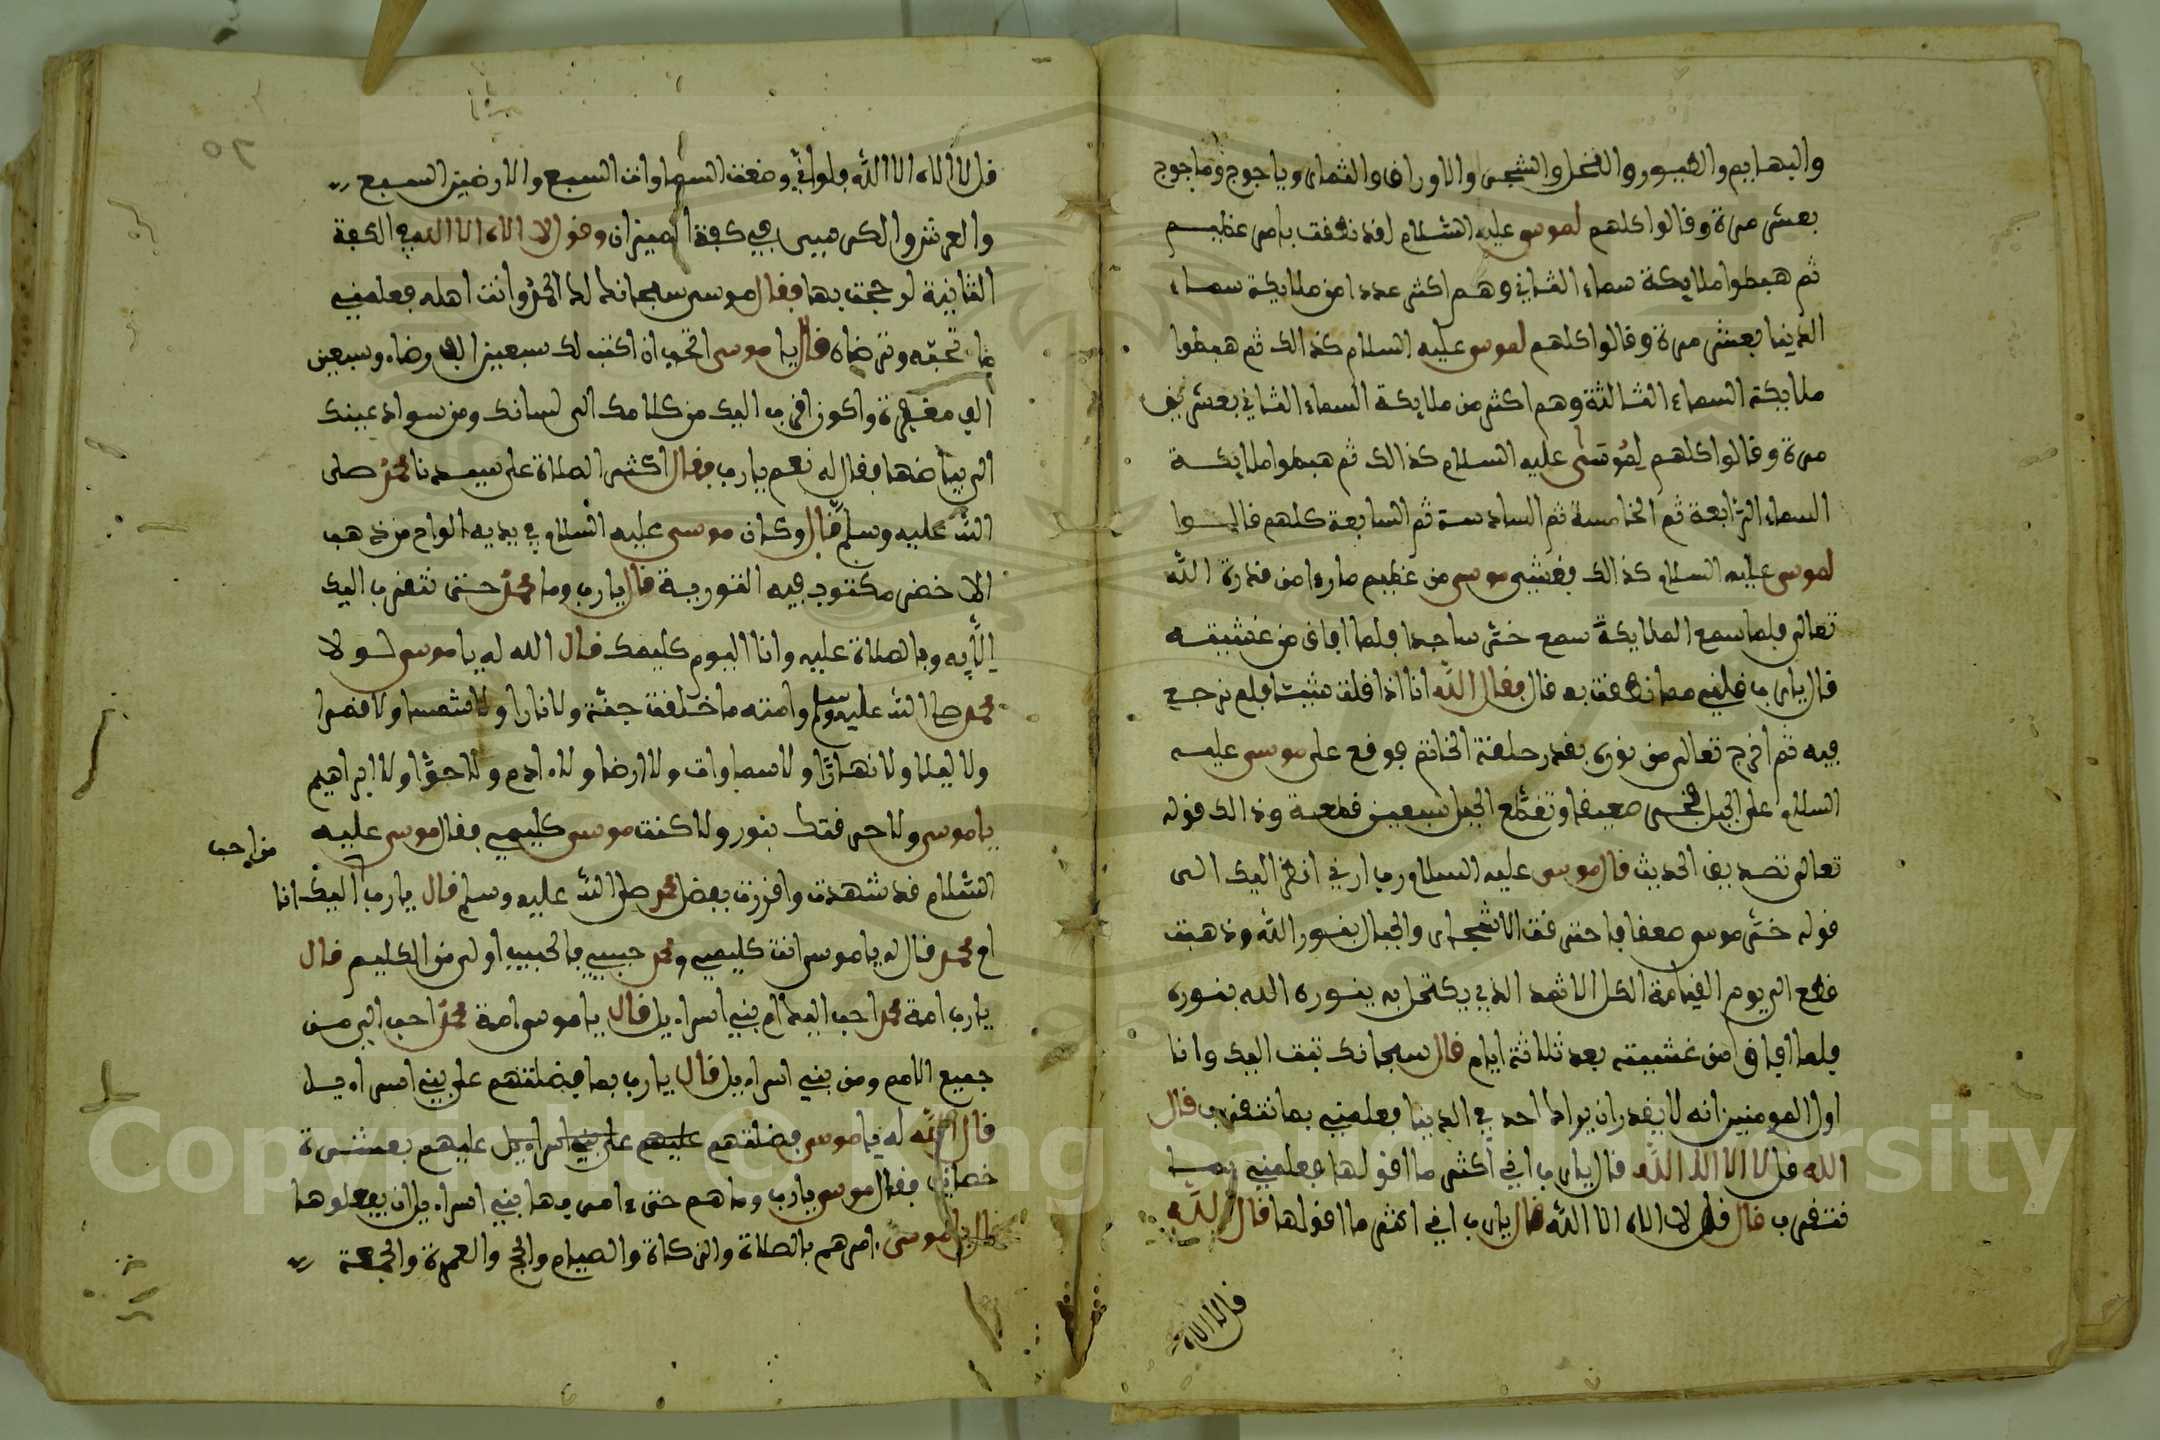 والبهايم والطيور والنخل والشجر والاوراق والثمار وياجوج وماجوج
بعشر مرة وقالوا كلهم لموسى عليه السلام لقد نطقت بامر عظيم
ثم هبطوا ملايكة سماء الثاني وهم اكثر عددا من ملايكة سماء
الدنيا بعشر مرة وقالوا كلهم لموسى عليه السلام كذالك ثم هبطوا
ملايكة السماء الثالثة وهم اكثر من ملايكة السماء الثاني بعشرين
مرة وقالوا كلهم لموسى عليه السلام كذالك ثم هبطوا ملايكة
السماء الرابعة ثم الخامسة ثم السادسة ثم السابعة كلهم قالوا
لموسى عليه السلام كذالك فغشي موسى من عظيم ما رءا من قدرة الله
تعالى فلما سمع الملايكة سمع خر ساجدا فلما افاق من غشيته
قال يارب مما نطقت به قال فقال الله انا اذا قلت شيئا فلم نرجع
فيه ثم اخرج تعالى من نوره بقدر حلقة الخاتم فوقع على موسى عليه
السلام على الجبل فخر صعيقا وتقطع الجبل سبعين قطعة وذالك قوله
تعالى تصديق الحديث قال موسى عليه السلام رب ارني انظر اليك الى
قوله خر موسى صعقا فاحترقت الاشجار والجبال بنور الله وذهبت
قطع الى يوم القيامة الكل الاثمد الذي يكتحل به ينوره الله بنوره
فلما افاق من غشيته بعد ثلاثة ايام قال سبحانك تبت اليك وانا
اول المومنين انه لا يقدر ان يراك احد في الدنيا فعلمني بما نتقرب قال
الله قل لا اله الا الله قال يارب اني اكثر ما اقولها فعلمني بما
نتقرب قال قل لا اله الا الله قال يارب اني اكثر ما اقولها قال الله
قل لا اله
٥٢
قل لا اله الا الله فلو اني وضعت السماوات السبع والارضين السبع
والعرش والكرسي في كفة الميزان وقول لا اله الا الله في الكفة
الثانية لرجحت بها فقال موسى سبحانك لك الحمد وانت اهله فعلمني
بما تحبه وترضاه قال يا موسى اتحب ان اكتب لك سبعين الف رضاء وسبعين
الف مغفرة واكون اقرب اليك من كلامك الى لسانك ومن سواد عينك
الى بياضها فقال له نعم يارب فقال اكثر الصلاة على سيدنا محمد صلى
الله عليه وسلم قال وكان موسى عليه السلام في يديه الواح من ذهب
الاخضر مكتوب فيه التورية قال يارب وما محمد حتى نتقرب اليك
الا به وبالصلاة عليه وانا اليوم كليمك قال الله له يا موسى لولا
محمد صلى الله عليه وسلم وامته ما خلقت جنة ولا نارا ولا شمسا ولا قمرا
ولا ليلا ولا نهارا ولا سماوات ولا ارضا ولا ءادم ولا حوا ولا ابراهيم
يا موسى ولا حرقتك بنور ولا كنت موسى كليمي فقال موسى عليه
السلام قد شهدت واقررت بفضل محمد صلى الله عليه وسلم قال يارب اليك انا
من احب
ام محمد قال له يا موسى انت كليمي ومحمد حبيبي فالحبيب اولى من الكليم قال
يارب امة محمد احب اليك ام بني اسراءيل قال يا موسى امة محمد احب الي من
جميع الامم ومن بني اسراءيل قال يارب بما فضلتهم على بني اسراءيل
قال الله له يا موسى فضلتهم عليهم على بني اسراءيل عليهم بعشرة
خصايل فقال موسى يارب وما هم حتى ءامر بها بني اسراءيل ان يفعلوها
قال يا موسى امرهم بالصلاة والزكاة والصيام والحج والعمرة والجمعة
Copyright © King Saud University